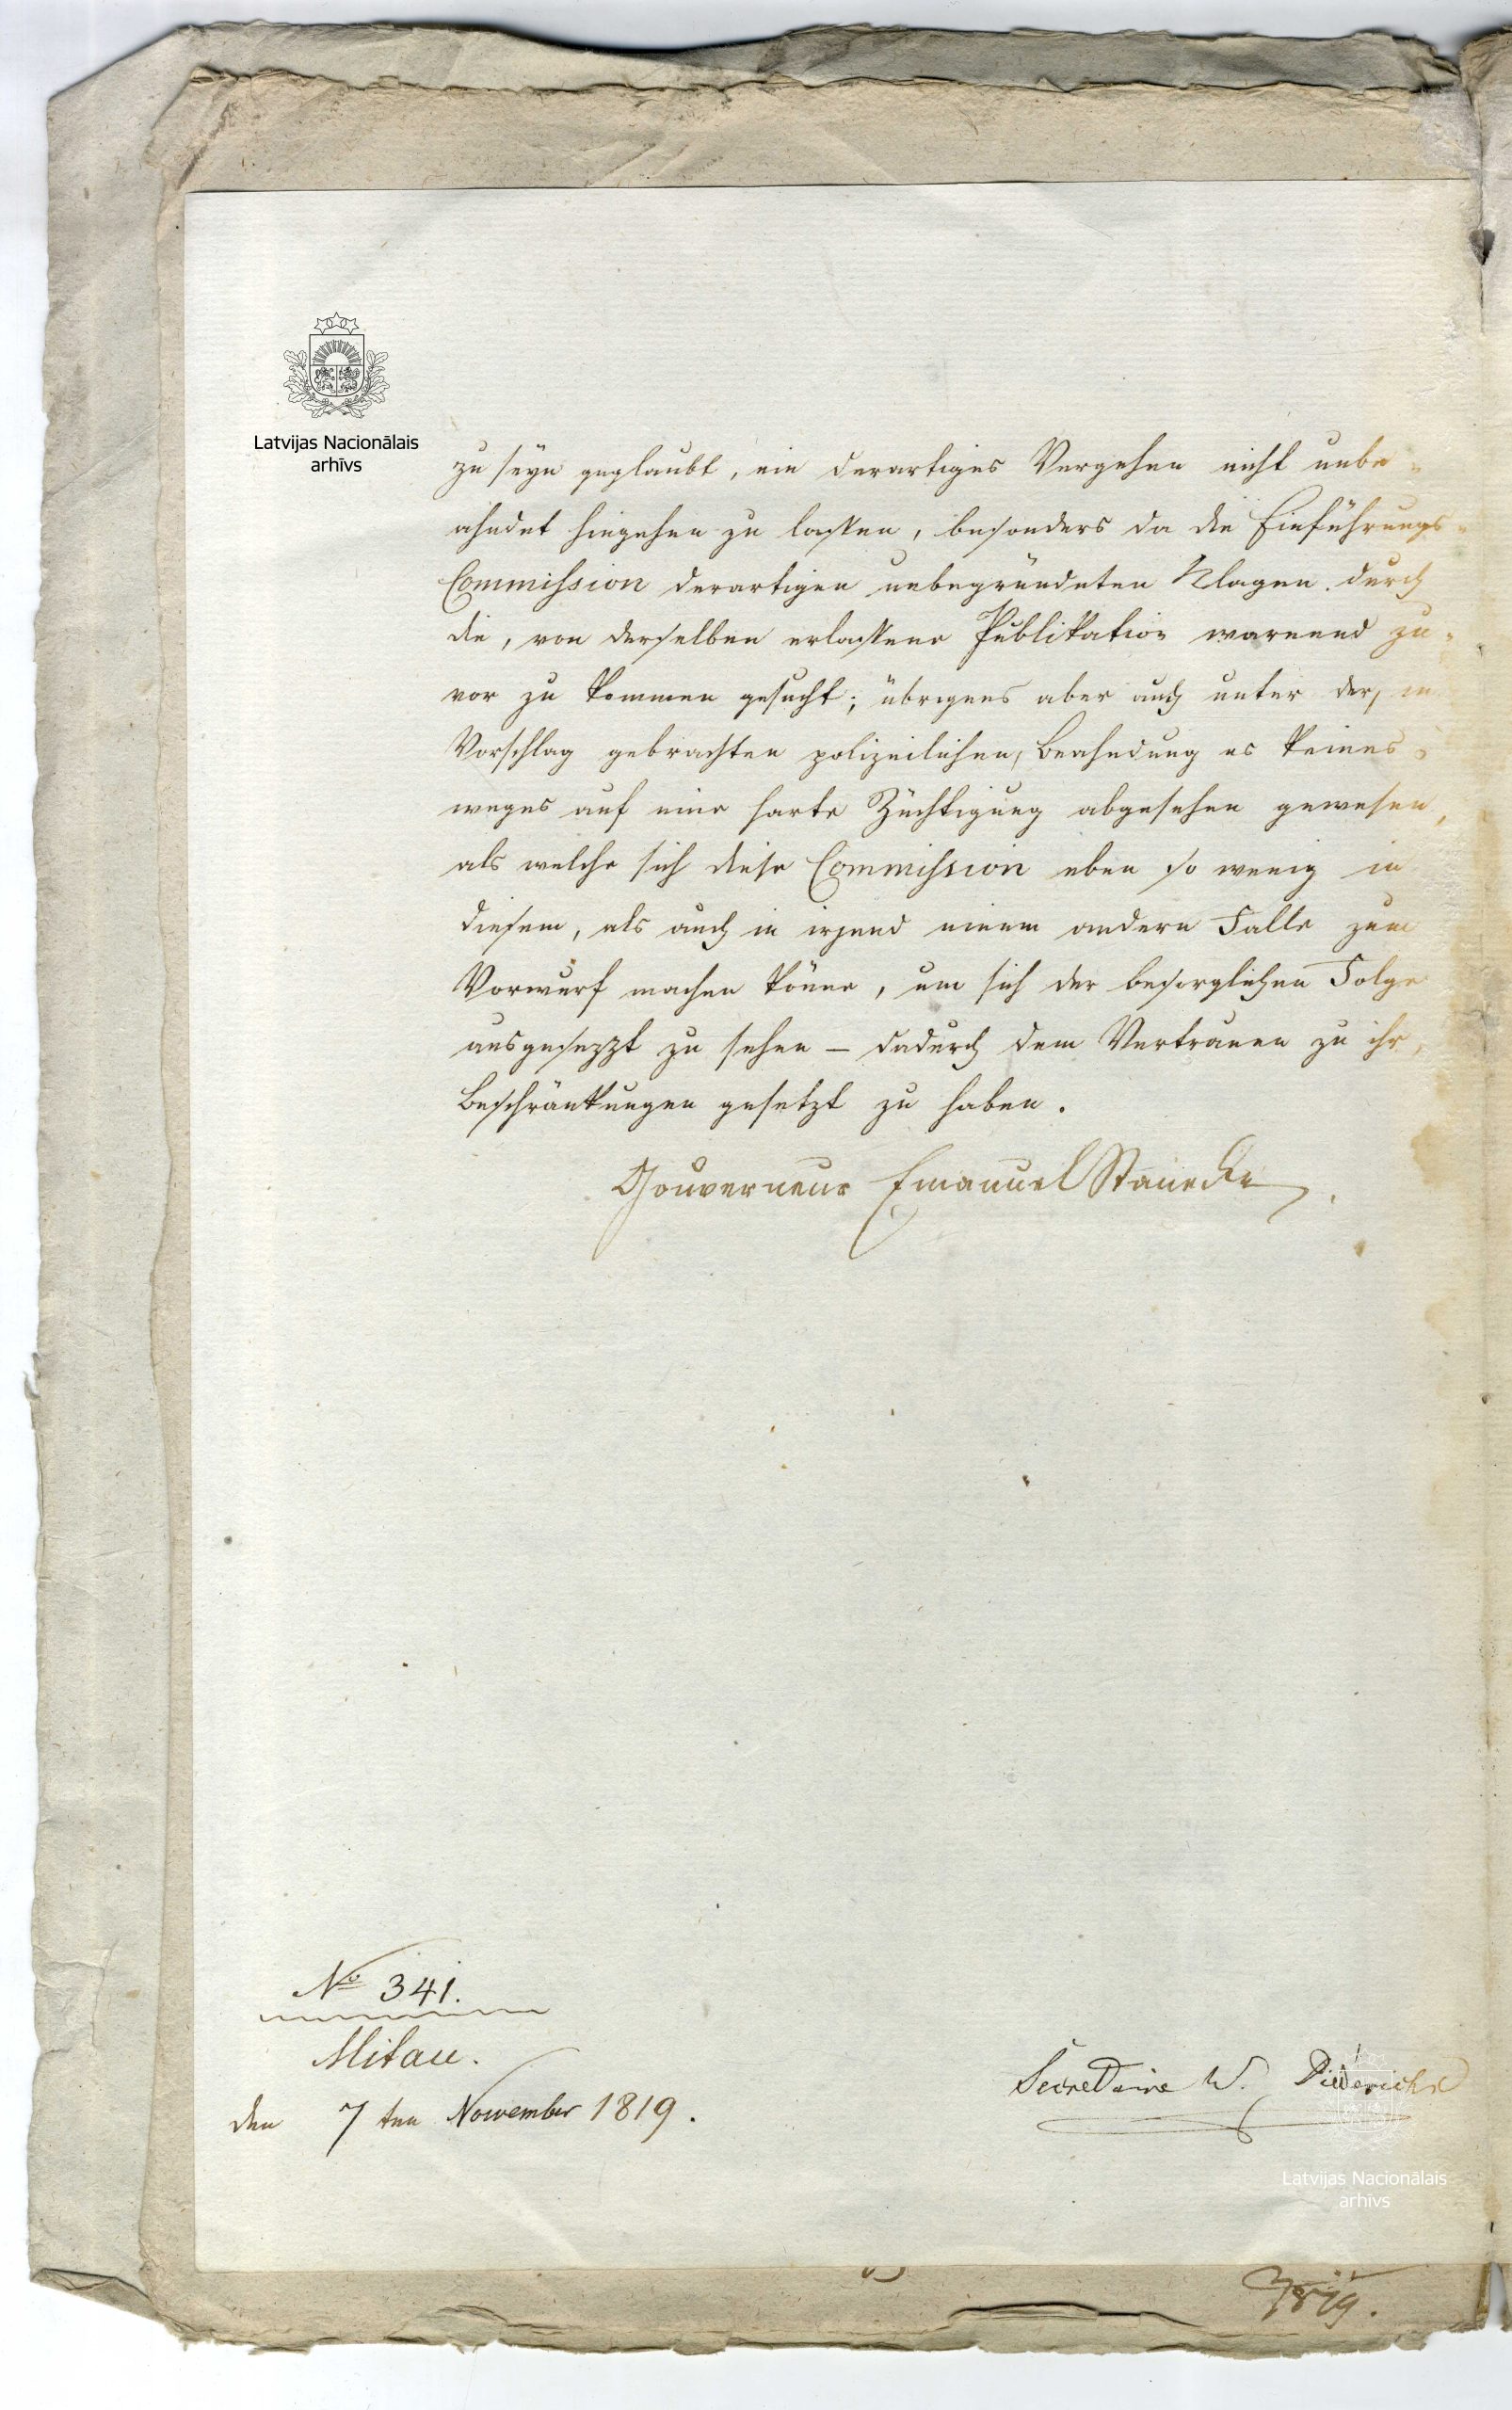 Latvijas Nacionālais
arhīvs
zu seyn geglaubt, ein derartiges Vergehen nicht unbe=
ahndet hingehen zu lassen, besonders da die Einführungs=
Commission derartigen unbegründeten Klagen durch
die, von derselben erlassene Publikation warnend zu=
vor zu kommen gesucht; übrigens aber auch unter der, in
Vorschlag gebrachten polizeilichen, Beahndung es keines=
weges auf eine harte Züchtigung abgesehen gewesen,
als welche sich diese Commission eben so wenig in
diesem, als auch in irgend einem andern Falle zum
Vorwurf machen könne, um sich der besorglichen Folge
ausgesezzt zu sehen – dadurch dem Vertrauen zu ihr,
Beschränkungen gesetzt zu haben.
Gouverneur Emanuel Stanecke
No 341.
Mitau.
den 7ten November 1819.
Secretaire W. Diederichs
Latvijas Nacionālais
arhīvs